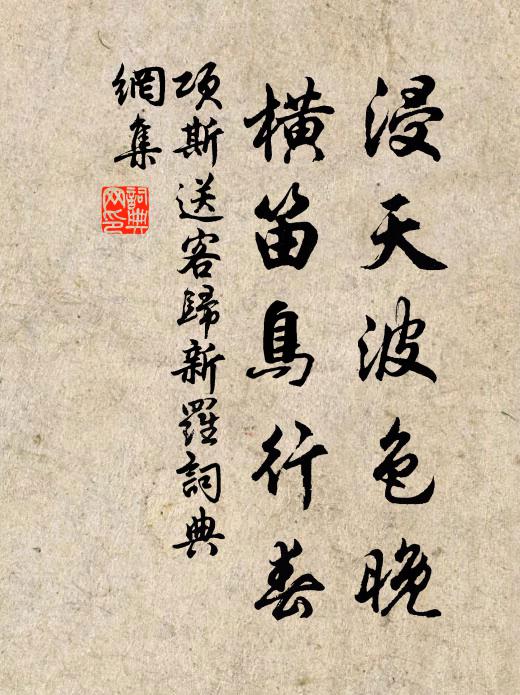 浸天波色晚
橫笛鳥行春
項斯送客歸新羅詞典
網集
詞典
网印